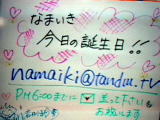 なまいき
今日の誕生日!!
namaiki@tandou.tv
PM6:00までに
送って下さい
お祝いします